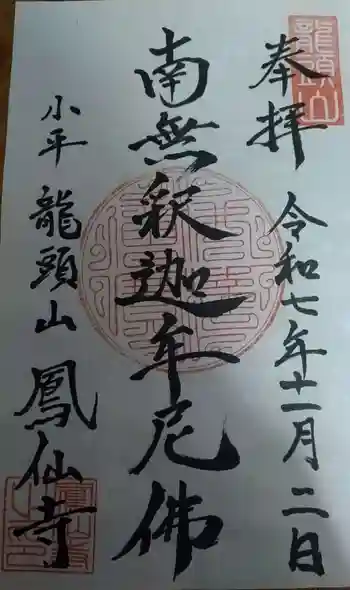 龍頭山
奉拝
令和七年十一月二日
南無釈迦牟尼佛
小平
龍頭山
鳳仙寺